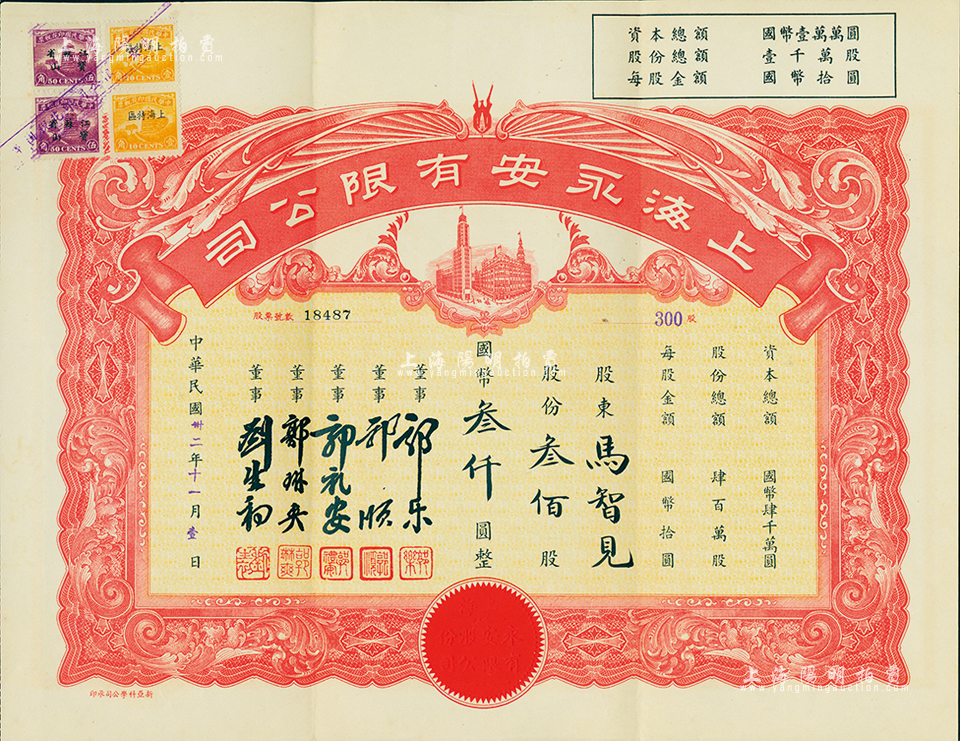 資本總額 國幣壹萬萬圓
股份總額 壹千萬股
每股金額 國幣拾圓
50 CENTS
10 CENTS
上海特區
50 CENTS
10 CENTS
上海特區
上海永安有限公司
股票號數 18487
300 股
資本總額 國幣肆千萬圓
股份總額 肆百萬股
每股金額 國幣拾圓
股東 馬智見
股份 叁佰 股
國幣 叁仟 圓整
董事 郭乐
董事 郭順
董事 郭礼安
董事 郭琳爽
董事 劉生初
中華民國卅二年十一月壹日
新亞科學公司承印
上海陽明拍賣
www.yangmingauction.com
上海陽明拍賣
www.yangmingauction.com
上海陽明拍賣
www.yangmingauction.com
上海陽明拍賣
www.yangmingauction.com